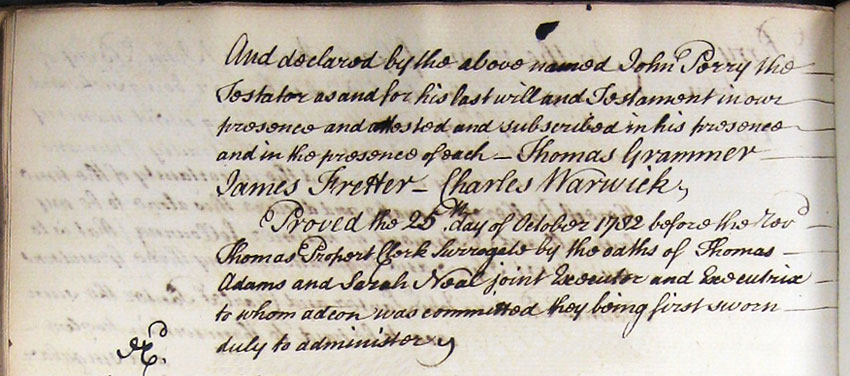 And declared by the above named John Perry the
Testator as and for his last will and Testament in our
presence and attested and subscribed in his presence
and in the presence of each – Thomas Grammer
James Fretter – Charles Warwick,
Proved the 25th day of October 1782 before the Revd
Thomas Propert Clerk Surrogate by the oaths of Thomas
Adams and Sarah Neal joint Executor and Executrix
to whom adcon was committed they being first sworn
duly to administer
Exd.